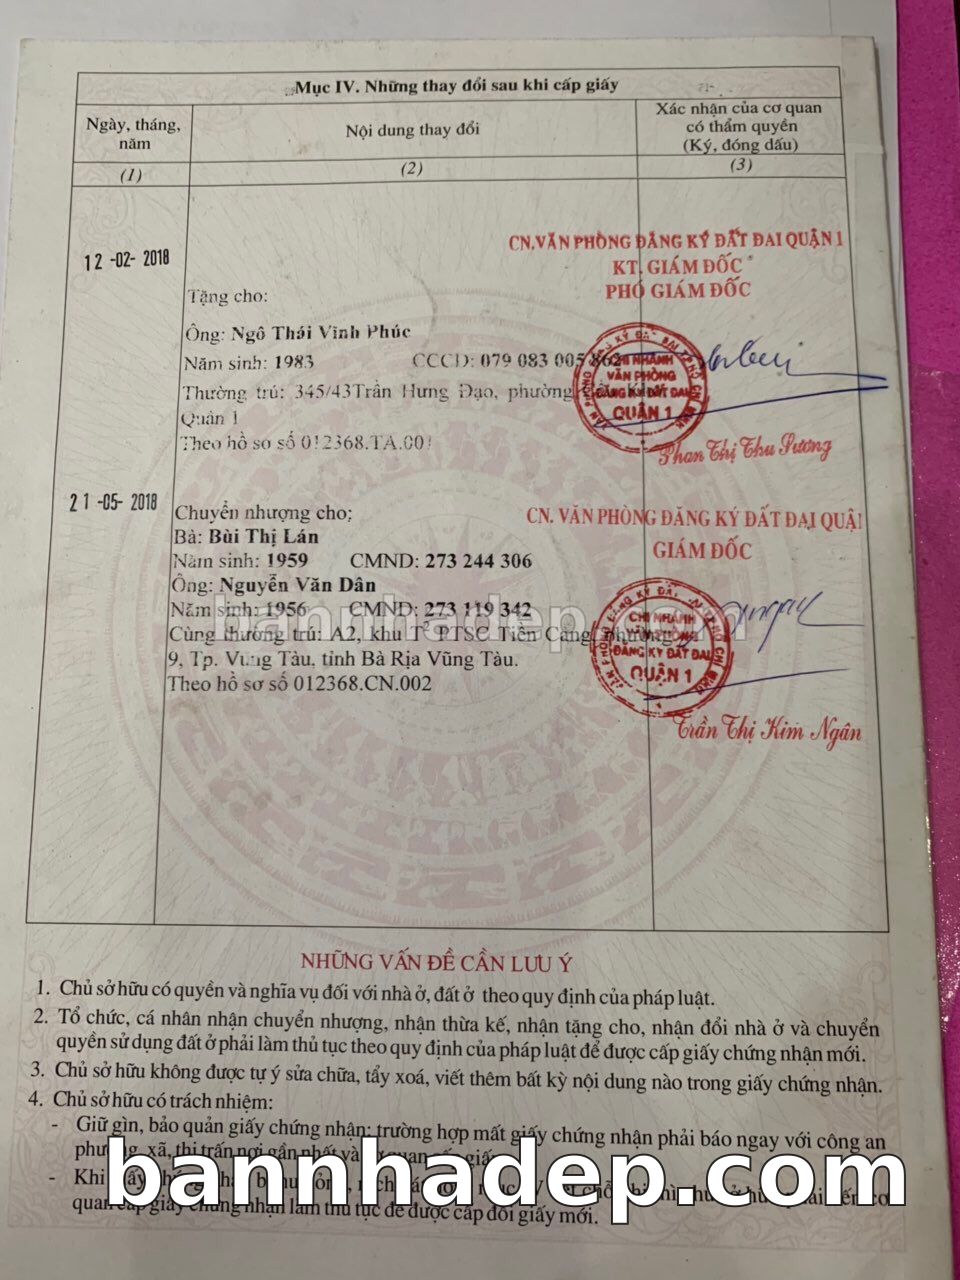 Mục IV. Những thay đổi sau khi cấp giấy
Ngày, tháng, năm
Nội dung thay đổi
Xác nhận của cơ quan
có thẩm quyền
(Ký, đóng dấu)
(1)
(2)
(3)
12 -02- 2018
CN.VĂN PHÒNG ĐĂNG KÝ ĐẤT ĐAI QUẬN 1
KT. GIÁM ĐỐC
PHÓ GIÁM ĐỐC
Tặng cho:
Ông: Ngô Thái Vĩnh Phúc
Năm sinh: 1983 CCCD: 079 083 005
Thường trú: 345/43Trần Hưng Đạo, phường
Quận 1
Theo hồ sơ số 012368.TA.001
CHI NHÁNH
VĂN PHÒNG
ĐĂNG KÝ ĐẤT ĐAI
QUẬN 1
Phan Thị Thu Sương
21 -05- 2018
CN. VĂN PHÒNG ĐĂNG KÝ ĐẤT ĐAI QUẬN
GIÁM ĐỐC
Chuyển nhượng cho:
Bà: Bùi Thị Lán
Năm sinh: 1959 CMND: 273 244 306
Ông: Nguyễn Văn Dân
Năm sinh: 1956 CMND: 273 119 342
Cùng thường trú: A2, khu T² PTSC Tiền Cảng, phường
9, Tp. Vũng Tàu, tỉnh Bà Rịa Vũng Tàu.
Theo hồ sơ số 012368.CN.002
bannhadep.com
CHI NHÁNH
VĂN PHÒNG
ĐĂNG KÝ ĐẤT ĐAI
QUẬN 1
Trần Thị Kim Ngân
NHỮNG VẤN ĐỀ CẦN LƯU Ý
1. Chủ sở hữu có quyền và nghĩa vụ đối với nhà ở, đất ở theo quy định của pháp luật.
2. Tổ chức, cá nhân nhận chuyển nhượng, nhận thừa kế, nhận tặng cho, nhận đổi nhà ở và chuyển
quyền sử dụng đất ở phải làm thủ tục theo quy định của pháp luật để được cấp giấy chứng nhận mới.
3. Chủ sở hữu không được tự ý sửa chữa, tẩy xoá, viết thêm bất kỳ nội dung nào trong giấy chứng nhận.
4. Chủ sở hữu có trách nhiệm:
- Giữ gìn, bảo quản giấy chứng nhận; trường hợp mất giấy chứng nhận phải báo ngay với công an
phường, xã, thị trấn nơi gần nhất và cơ quan cấp giấy.
- Khi
quan cấp giấy chứng nhận làm thủ tục để được cấp đổi giấy mới.
bannhadep.com